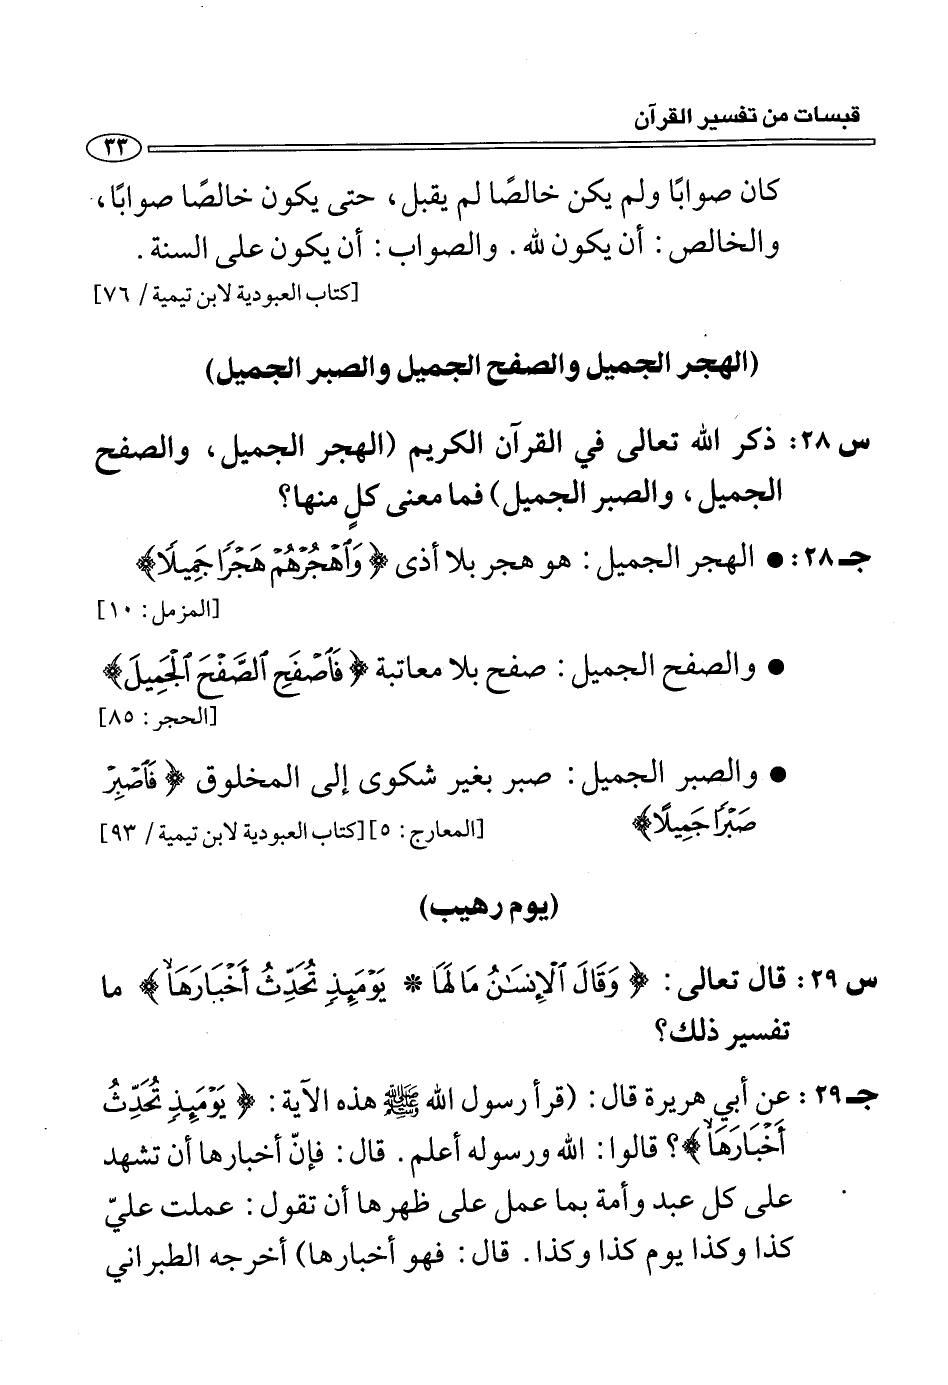 قبسات من تفسير القرآن
٣٣
كان صوابًا ولم يكن خالصًا لم يقبل، حتى يكون خالصًا صوابًا،
والخالص: أن يكون لله. والصواب: أن يكون على السنة.
[كتاب العبودية لابن تيمية / ٧٦]
(الهجر الجميل والصفح الجميل والصبر الجميل)
س ٢٨: ذكر الله تعالى في القرآن الكريم (الهجر الجميل، والصفح
الجميل، والصبر الجميل) فما معنى كلٍ منها؟
جـ ٢٨: ● الهجر الجميل: هو هجر بلا أذى ﴿وَٱهْجُرْهُمْ هَجْرًا جَمِيلًا﴾
[المزمل: ١٠]
● والصفح الجميل: صفح بلا معاتبة ﴿فَٱصْفَحِ ٱلصَّفْحَ ٱلْجَمِيلَ﴾
[الحجر: ٨٥]
● والصبر الجميل: صبر بغير شكوى إلى المخلوق ﴿فَٱصْبِرْ
صَبْرًا جَمِيلًا﴾ [المعارج: ٥] [كتاب العبودية لابن تيمية / ٩٣]
(يوم رهيب)
س ٢٩: قال تعالى: ﴿وَقَالَ ٱلْإِنسَٰنُ مَا لَهَا * يَوْمَئِذٍ تُحَدِّثُ أَخْبَارَهَا﴾ ما
تفسير ذلك؟
جـ ٢٩: عن أبي هريرة قال: (قرأ رسول الله ﷺ هذه الآية: ﴿يَوْمَئِذٍ تُحَدِّثُ
أَخْبَارَهَا﴾؟ قالوا: الله ورسوله أعلم. قال: فإنّ أخبارها أن تشهد
على كل عبد وأمة بما عمل على ظهرها أن تقول: عملت عليّ
كذا وكذا يوم كذا وكذا. قال: فهو أخبارها) أخرجه الطبراني